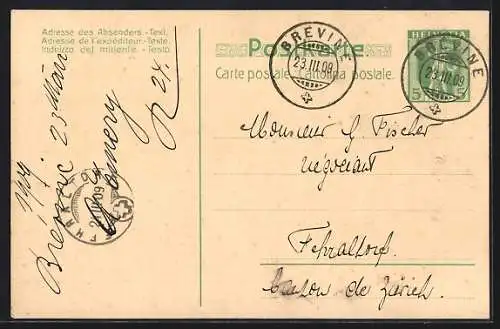 Adresse des Absenders - Text.
Adresse de l'expéditeur - Texte
Indirizzo del mittente - Testo
Postkarte.
Carte postale. Cartolina postale.
BREVINE
23.III.09
HELVETIA
5 5
BREVINE
23.III.09
Monsieur G. Fischer
négociant
Fehraltorf.
Canton de Zürich.
Brévine 23 Mars
1909
R 24.
23.III.09